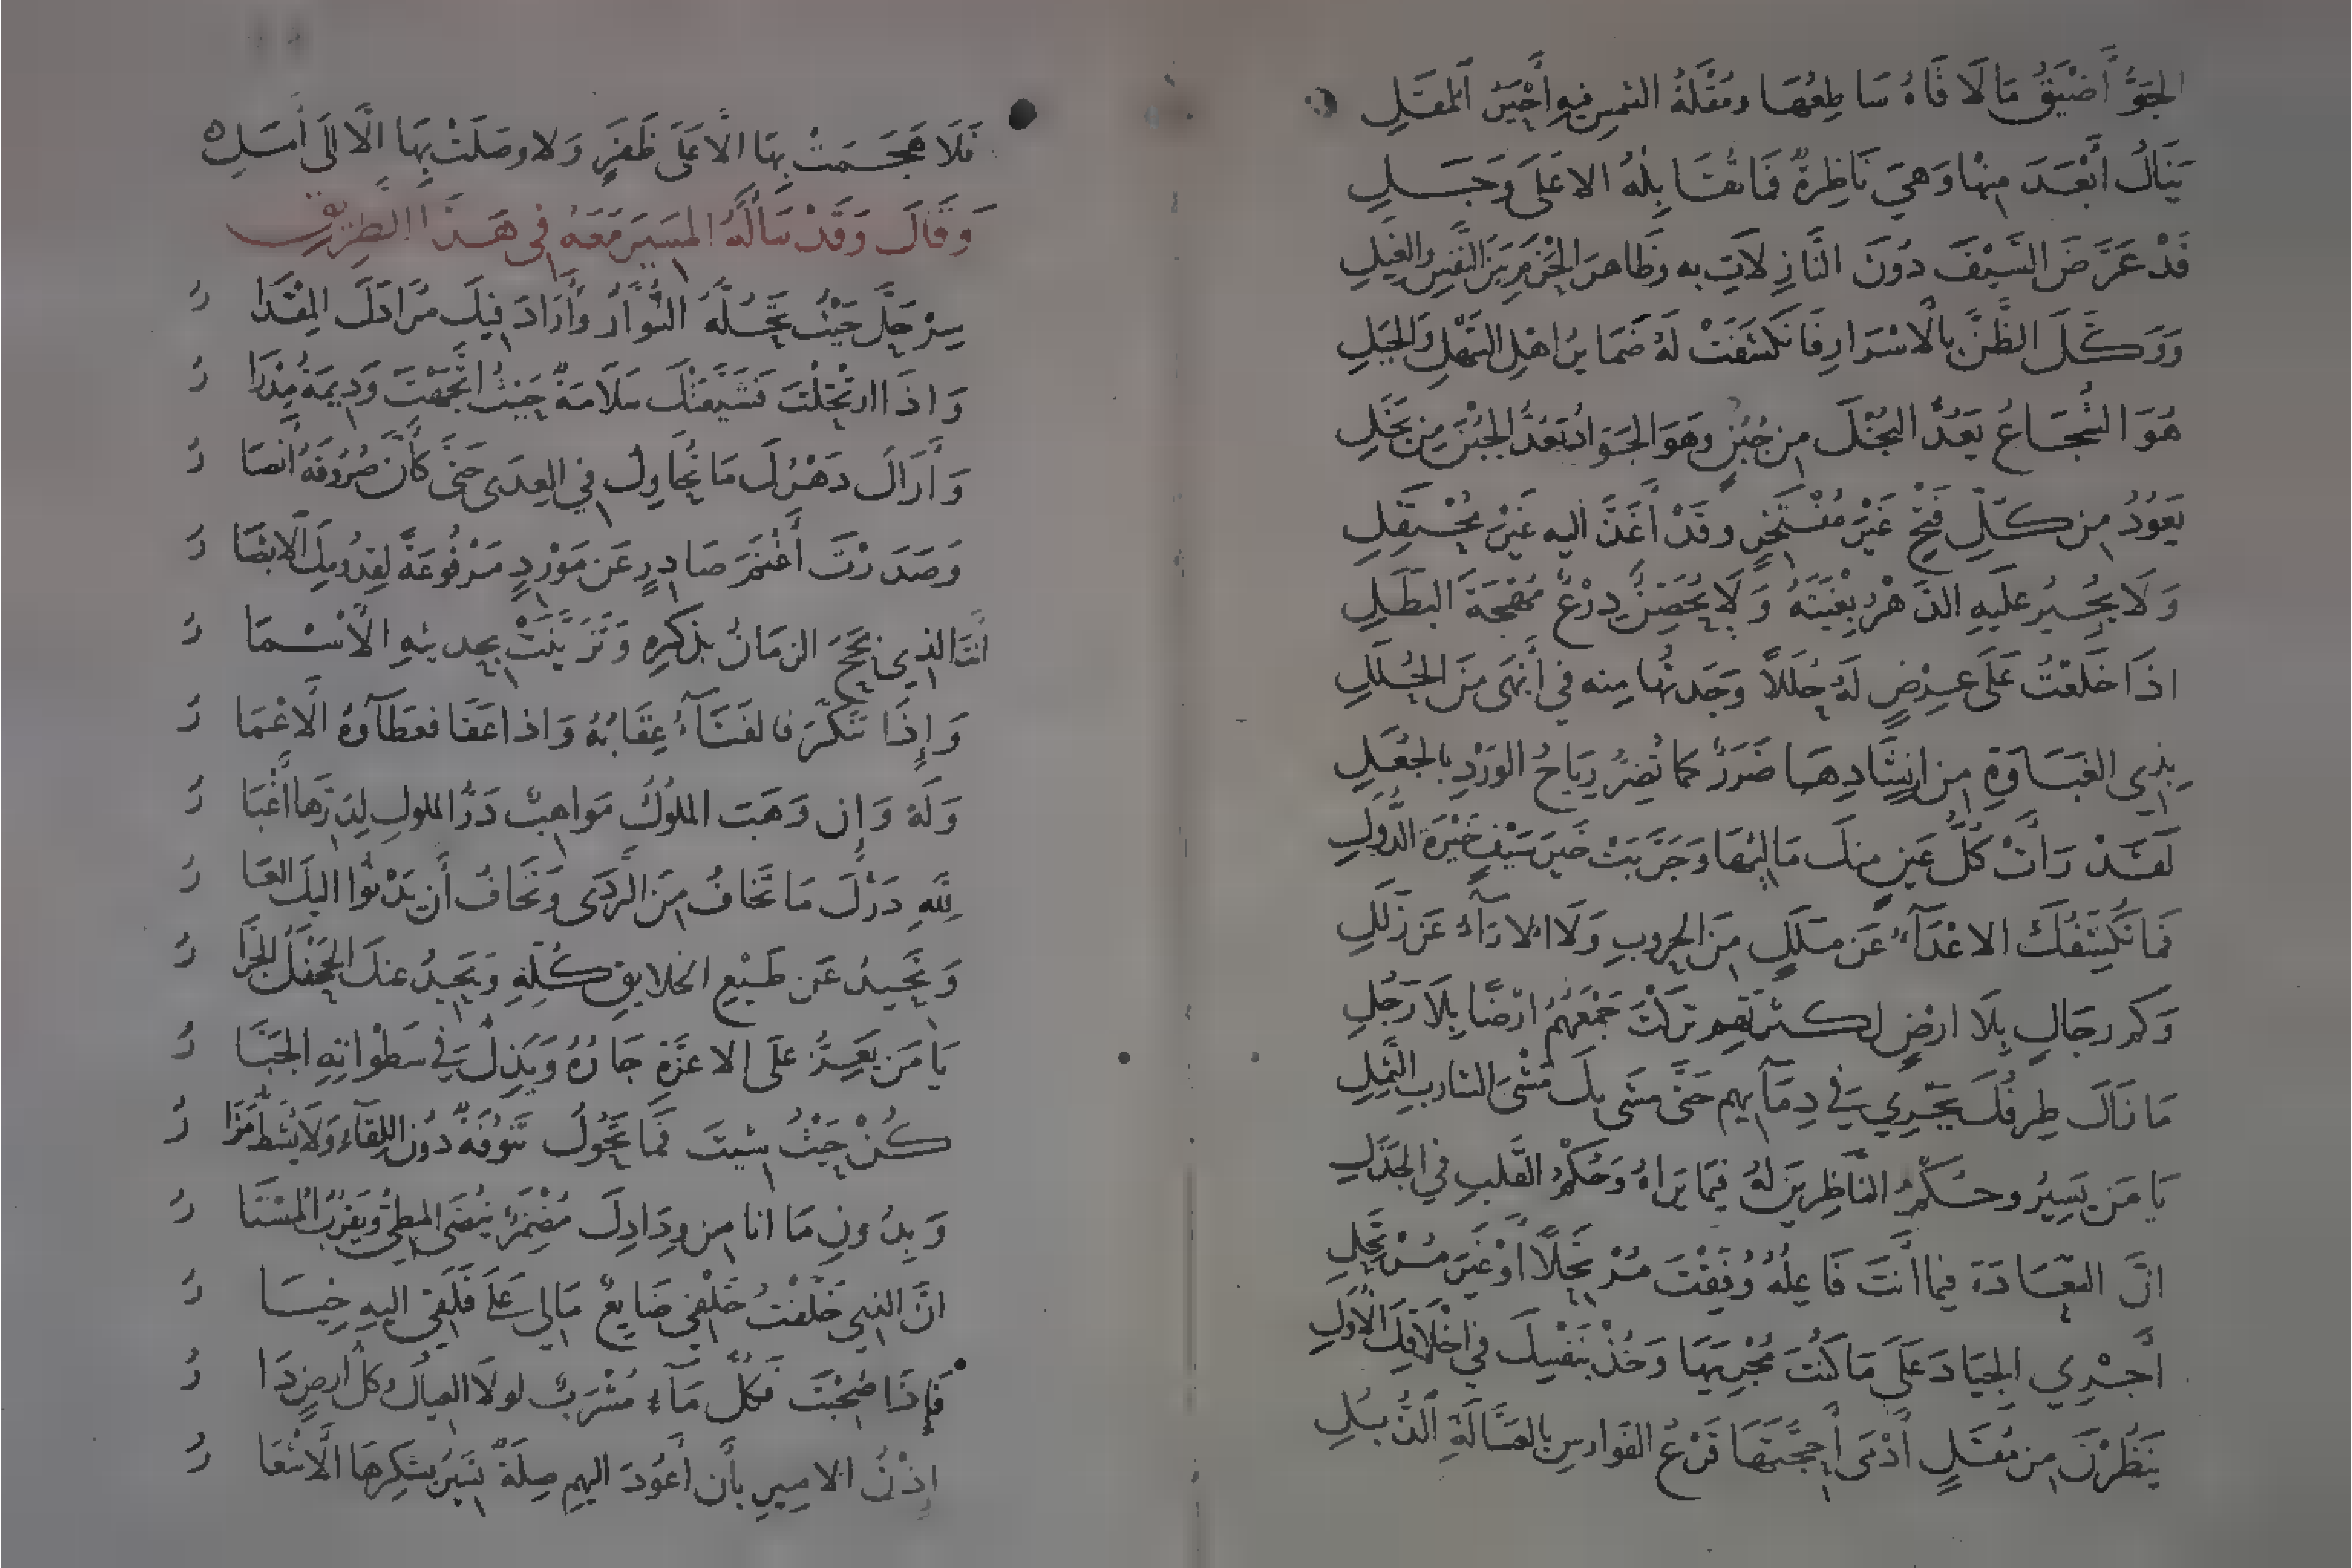 الجَوُّ أَضْيَقُ مَا لَاقَاهُ سَاطِعُهَا ومُقْلَةُ الشمسِ فيهِ أَحْيَرُ المُقَلِ
يَنَالُ أَبْعَدَ مِنْهَا وَهيَ نَاظِرةٌ فَمَا تُقَابِلُهُ الا عَلَى وَجَلِ
قَدْ عَرَّضَ السَّيْفَ دُونَ النَّازِلَاتِ به وَظَاهرَ الحَزْمَ بَيْنَ النَّفْسِ والغِيَلِ
وَوَكَّلَ الظَّنَّ بالأسْرَارِ فَانكَشَفَتْ لَهُ ضَمَايرُ اهْلِ السَّهْلِ والجَبَلِ
هُوَ الشُّجَاعُ يَعُدُّ البُخْلَ مِن جُبُنٍ وهوَ الجَوَادُ يَعُدُّ الجُبْنَ مِن بَخَلِ
يَعُودُ مِن كُلِّ فَتْحٍ غَيْرَ مُفْتَخِرٍ وقَدْ أَغَذَّ اليه غَيْرَ مُحْتَفِلِ
وَلَا يُجِيرُ عليهِ الدَّهْرُ بِغْيَتَهُ وَلَا يُحَصِّنُ دِرْعٌ مُهْجَةَ البَطَلِ
اذَا خَلَعْتُ عَلَى عِرْضٍ لَهُ حُلَلاً وَجَدتُها مِنه في أَبْهَى مِنَ الحُلَلِ
بِذِي الغَبَاوَةِ مِن انشَادِهَا ضَرَرٌ كما تُضِرُّ رِيَاحُ الوَرْدِ بالجُعَلِ
لَقَدْ رَأَتْ كُلُّ عَينٍ مِنكَ مَالِئَهَا وَجَرَّبَتْ خَيرَ سَيْفٍ خَيْرَةُ الدُّوَلِ
فَمَا تُكَشِّفُكَ الاعْدَآءُ عَن مَلَلٍ مِنَ الحروبِ وَلَا الارَآءُ عَن زَلَلِ
وَكم رجَالٍ بِلَا ارْضٍ لكثْرتهم تركْتَ جَمْعَهُمُ ارْضًا بِلَا رَجُلِ
مَا زَالَ طِرفُكَ يَجْرِي في دِمَآيِهم حَتَّى مشَى بكَ مَشْيَ الشاربِ الثَّمِلِ
يَا مَن يَسِيرُ وحُكْمُ النَّاظِرينَ لهُ فِيمَا يَراهُ وَحُكْمُ القَلبِ في الجَذَلِ
انَّ السَّعَادَةَ فيما أنتَ فَاعِلُهُ وُفِّقْتَ مُرْتحِلًا أوْ غَيرَ مُرْتحِلِ
أجْرِي الجِيَادَ عَلَى مَا كُنْتَ مُجْرِيَهَا وَخُذْ بِنَفْسِكَ في اخْلَاقِكَ الأوَلِ
يَنظُرْنَ مِن مُقَلٍ أدْمَى أحِجَّتَهَا قَرْعُ الفوارسِ بالعَسَّالَةِ الذُّبُلِ
فَلَا هَجَمَتْ بِهَا الَّا عَلَى ظَفَرٍ وَلا وصَلَتْ بِهَا الَّا الَى أَمَلِ ه
وَقَالَ وَقَدْ سَأَلَهُ المَسِيرَ مَعَهُ في هَذَا الطَّرِيْقِ
سِرْ حَلَّ حَيْثُ تَحُلُّهُ النُّوَّارُ وَأَرَادَ فيكَ مُرَادَكَ المِقْدَا رُ
وَاذَا ارتَحَلْتَ فَشَيَّعَتْكَ سَلَامَةٌ حَيْثُ اتَّجَهْتَ وَدِيمَةٌ مِدْرَا رُ
وَأَرَاكَ دَهْرُكَ مَا تُحَاوِلُ في العِدَى حَتَّى كَأَنَّ صُرُوفَهُ أنصَا رُ
وَصَدَرْتَ أَغْنَمَ صَادِرٍ عَن مَوْرِدٍ مَرْفُوعَةً لِقُدُومِكَ الأبْصَا رُ
أَنتَ الذِي بَجَحَ الزمَانُ بذِكْرِهِ وَتَزَيَّنَتْ بِحديثِهِ الأَسْمَا رُ
وَإِذَا تَنَكَّرَ فالفَنَآءُ عِقَابُهُ وَاذا عَفَا فعَطَآوهُ الأعْمَا رُ
وَلَهُ وَإِن وَهَبَ الملُوكُ مَواهِبٌ دَرُّ الملوكِ لِدَرِّها أغْبَا رُ
لِلَّهِ دَرُّكَ مَا تَخافُ مِنَ الرَّدَى وَتَخَافُ أَن يَدْنُوا اليكَ العَا رُ
وَتَحِيدُ عَن طَبْعِ الخلايقِ كُلِّهِ وَيَحِيدُ عنكَ الجَحْفَلُ الجَرَّا رُ
يَا مَن يَعِزُّ عَلَى الاعزَّةِ جَارُهُ وَيَذِلُّ في سَطْواتِهِ الجَبَّا رُ
كُنْ حَيْثُ شِيتَ فَمَا تَحُولُ تَنُوفَةٌ دُونَ اللقَآءِ وَلَا يَشِطُّ مَزَا رُ
وَبِدُونِ مَا انا مِن وِدَادِكَ مُضْمِرٌ يُنضَى المطِيُّ ويَقْرُبُ المُسْتَا رُ
انَّ الذِي خَلَّفْتُ خَلْفِي ضَايعٌ مَا لي عَلَى قَلَقِي اليهِ خِيَا رُ
فَإِذَا صُحِبْتَ فَكُلُّ مَآءٍ مَشْرَبٌ لولَا العِيالُ وكلُّ ارضٍ دَا رُ
إذْنُ الامِيرِ بأَن أَعُودَ اليهم صِلَةٌ تَسِيرُ بشكرِهَا الأَشْعَا رُ